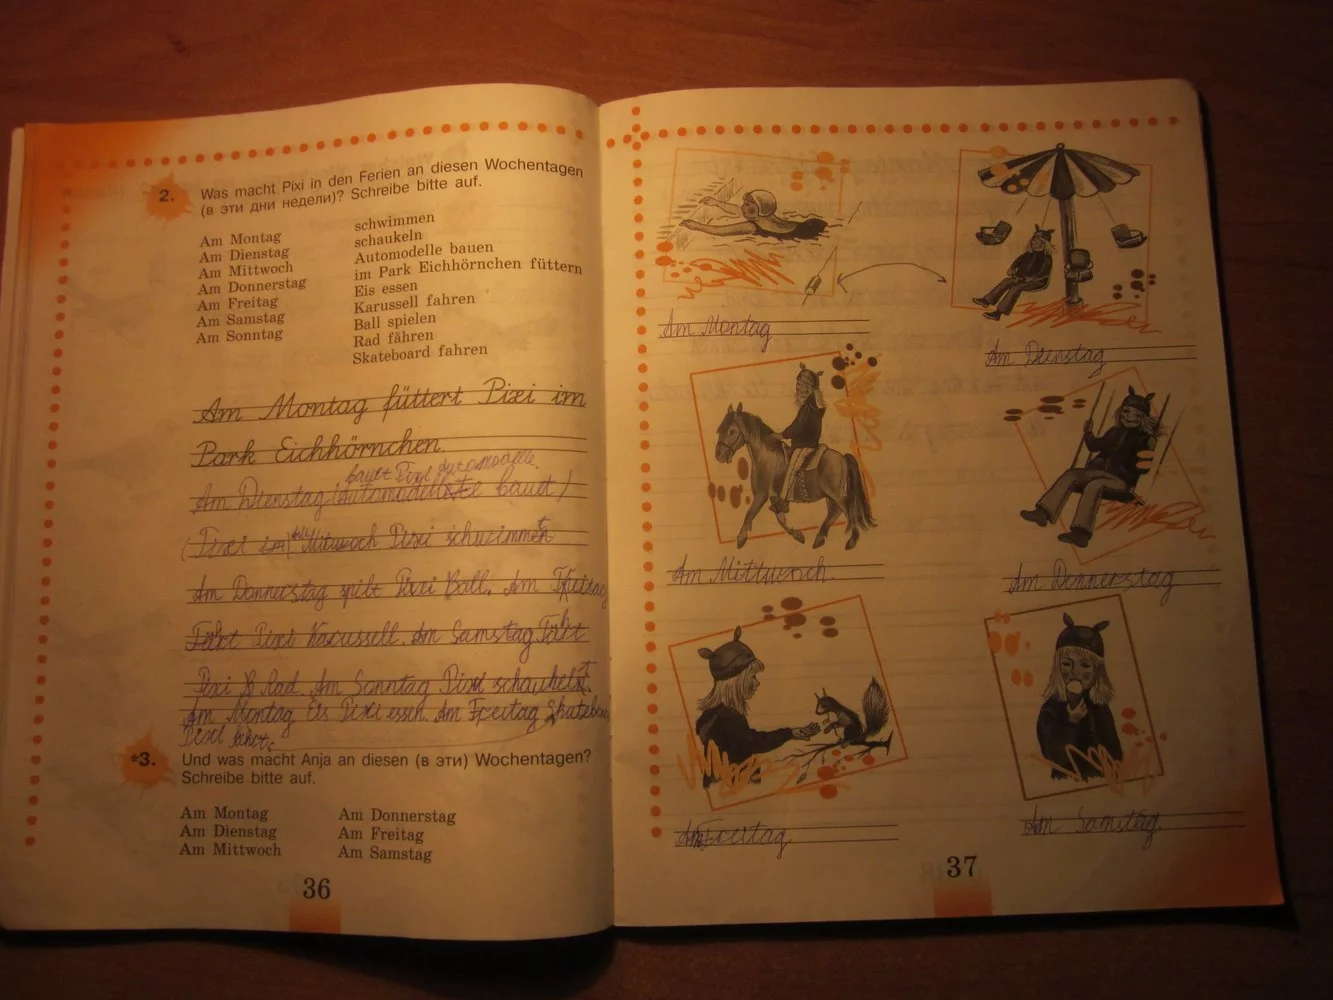 2. Was macht Pixi in den Ferien an diesen Wochentagen
(в эти дни недели)? Schreibe bitte auf.
Am Montag
Am Dienstag
Am Mittwoch
Am Donnerstag
Am Freitag
Am Samstag
Am Sonntag
schwimmen
schaukeln
Automodelle bauen
im Park Eichhörnchen füttern
Eis essen
Karussell fahren
Ball spielen
Rad fahren
Skateboard fahren
Am Montag füttert Pixi im
Park Eichhörnchen.
baut Pixi Automodelle.
Am Dienstag baut
Pixi Am Mittwoch Pixi schwimmt
Am Donnerstag spilt Pixi Ball. Am Freitag
Fährt Pixi Karussell. Am Samstag Fährt
Pixi Rad. Am Sonntag Pixi schaukelt.
Am Montag Eis Pixi essen. Am Freitag
Pixi fährt.
*3. Und was macht Anja an diesen (в эти) Wochentagen?
Schreibe bitte auf.
Am Montag
Am Dienstag
Am Mittwoch
Am Donnerstag
Am Freitag
Am Samstag
36
Am Montag
Am Dienstag
Am Mittwoch.
Am Donnerstag
Am Freitag
Am Samstag.
37